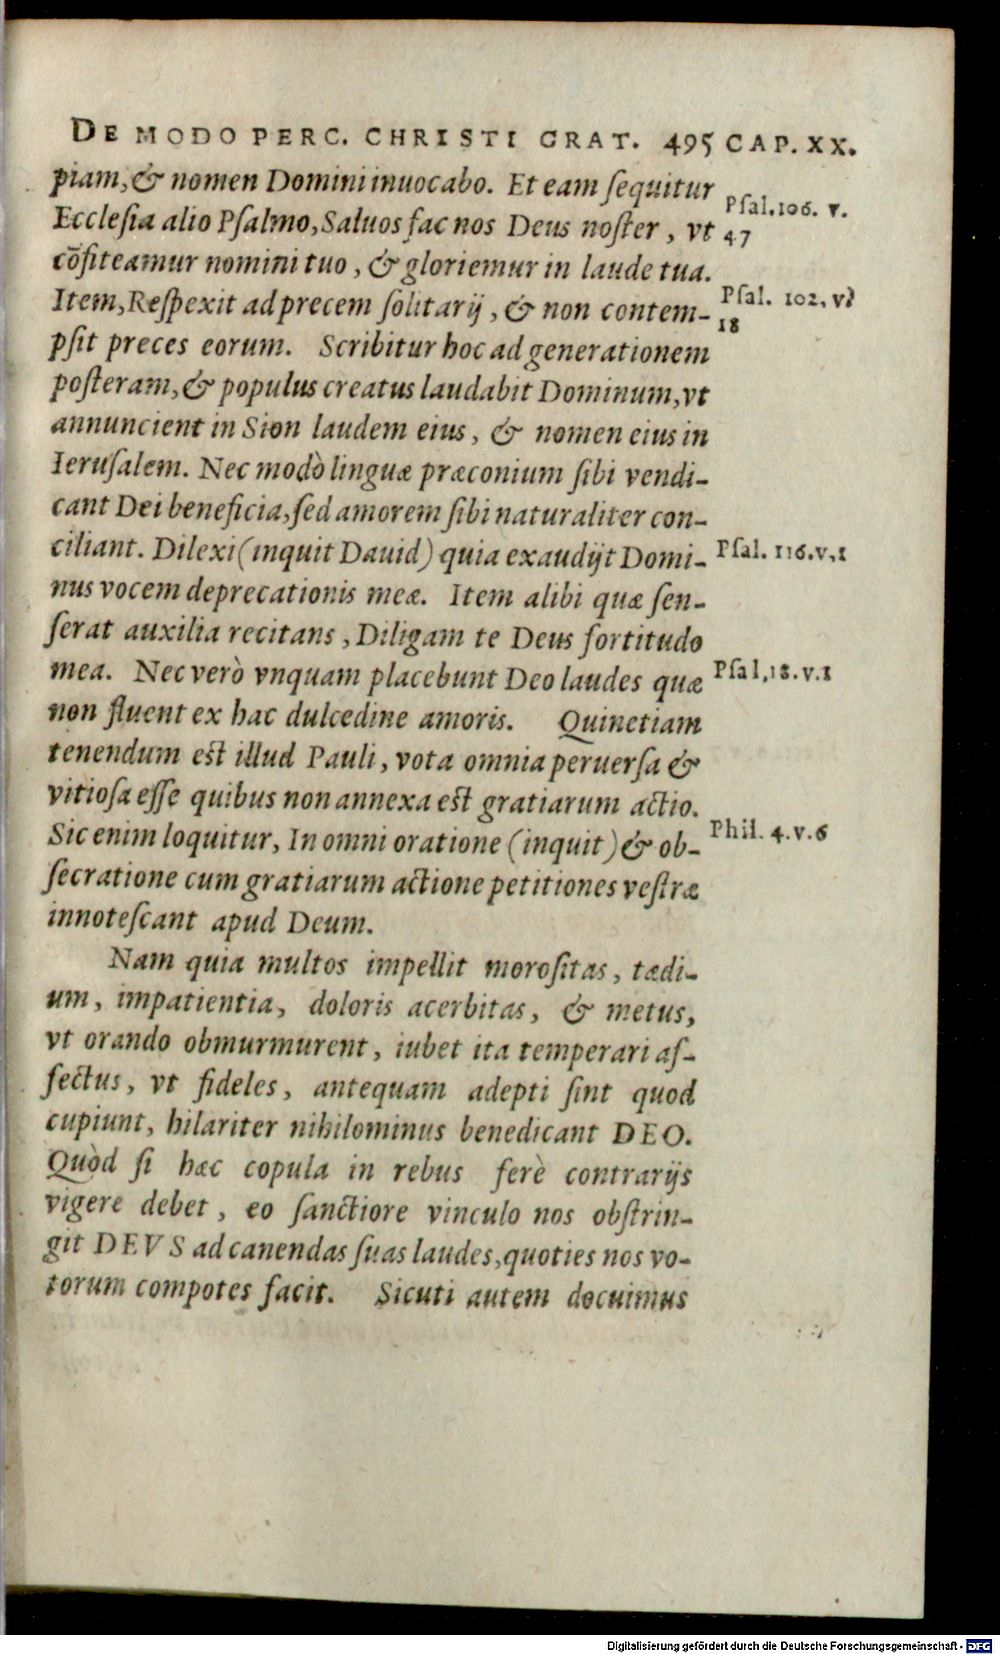 DE MODO PERC. CHRISTI GRAT. 495 CAP. XX.
piam, & nomen Domini inuocabo. Et eam ſequitur
Pſal. 106. v.
47
Eccleſia alio Pſalmo, Saluos fac nos Deus noſter, vt
cõfiteamur nomini tuo, & gloriemur in laude tua.
Item, Reſpexit ad precem ſolitarij, & non contem-
Pſal. 102. v
18
pſit preces eorum. Scribitur hoc ad generationem
poſteram, & populus creatus laudabit Dominum, vt
annuncient in Sion laudem eius, & nomen eius in
Ieruſalem. Nec modò linguæ præconium ſibi vendi-
cant Dei beneficia, ſed amorem ſibi naturaliter con-
ciliant. Dilexi (inquit Dauid) quia exaudijt Domi-
Pſal. 116. v, 1
nus vocem deprecationis meæ. Item alibi quæ ſen-
ſerat auxilia recitans, Diligam te Deus fortitudo
mea. Nec verò vnquam placebunt Deo laudes quæ
Pſal, 18. v. 1
non fluent ex hac dulcedine amoris. Quinetiam
tenendum eſt illud Pauli, vota omnia peruerſa &
vitioſa eſſe quibus non annexa eſt gratiarum actio.
Sic enim loquitur, In omni oratione (inquit) & ob-
Phil. 4. v. 6
ſecratione cum gratiarum actione petitiones veſtræ
innoteſcant apud Deum.
Nam quia multos impellit moroſitas, tædi-
um, impatientia, doloris acerbitas, & metus,
vt orando obmurmurent, iubet ita temperari af-
fectus, vt fideles, antequam adepti ſint quod
cupiunt, hilariter nihilominus benedicant DEO.
Quòd ſi hæc copula in rebus ferè contrarijs
vigere debet, eo ſanctiore vinculo nos obſtrin-
git DEVS ad canendas ſuas laudes, quoties nos vo-
torum compotes facit. Sicuti autem docuimus
Digitalisierung gefördert durch die Deutsche Forschungsgemeinschaft - DFG